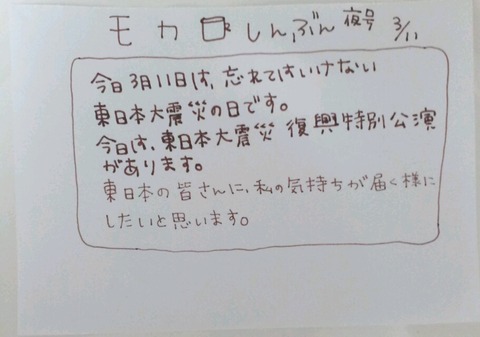 モカしんぶん 夜号 3/11
今日3月11日は、忘れてはいけない
東日本大震災の日です。
今日は、東日本大震災 復興特別公演
があります。
東日本の皆さんに、私の気持ちが届く様に
したいと思います。